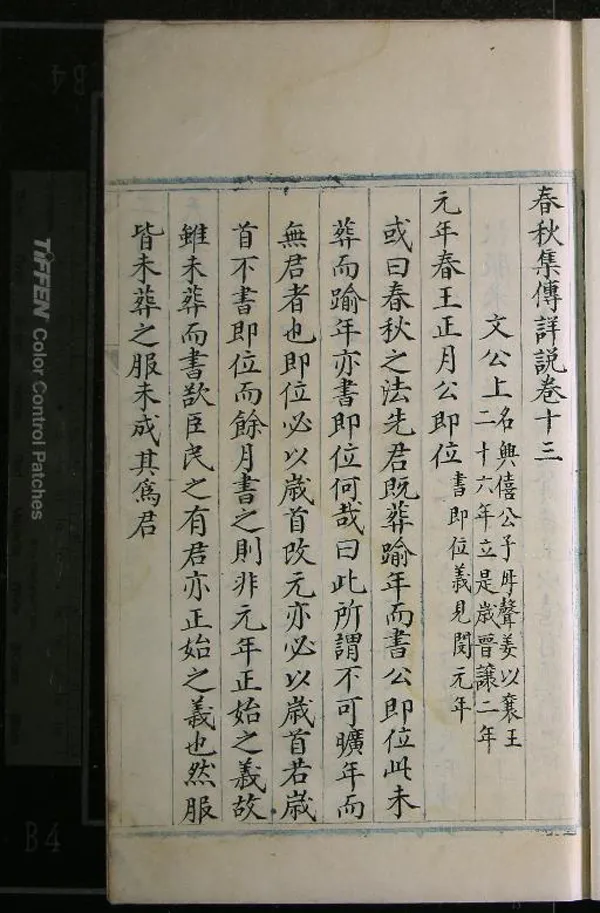 春秋集傳詳説卷十三
文公上 名興僖公子母聲姜以襄王
二十六年立是歲晉讓二年
元年春王正月公即位 書即位義見閔元年
或曰春秋之法先君既葬踰年而書公即位此未
葬而踰年亦書即位何哉曰此所謂不可曠年而
無君者也即位必以歲首改元亦必以歲首若歲
首不書即位而餘月書之則非元年正始之義故
雖未葬而書欵臣民之有君亦正始之義也然服
皆未葬之服未成其爲君
TIFFEN Color Control Patches
B4
B4